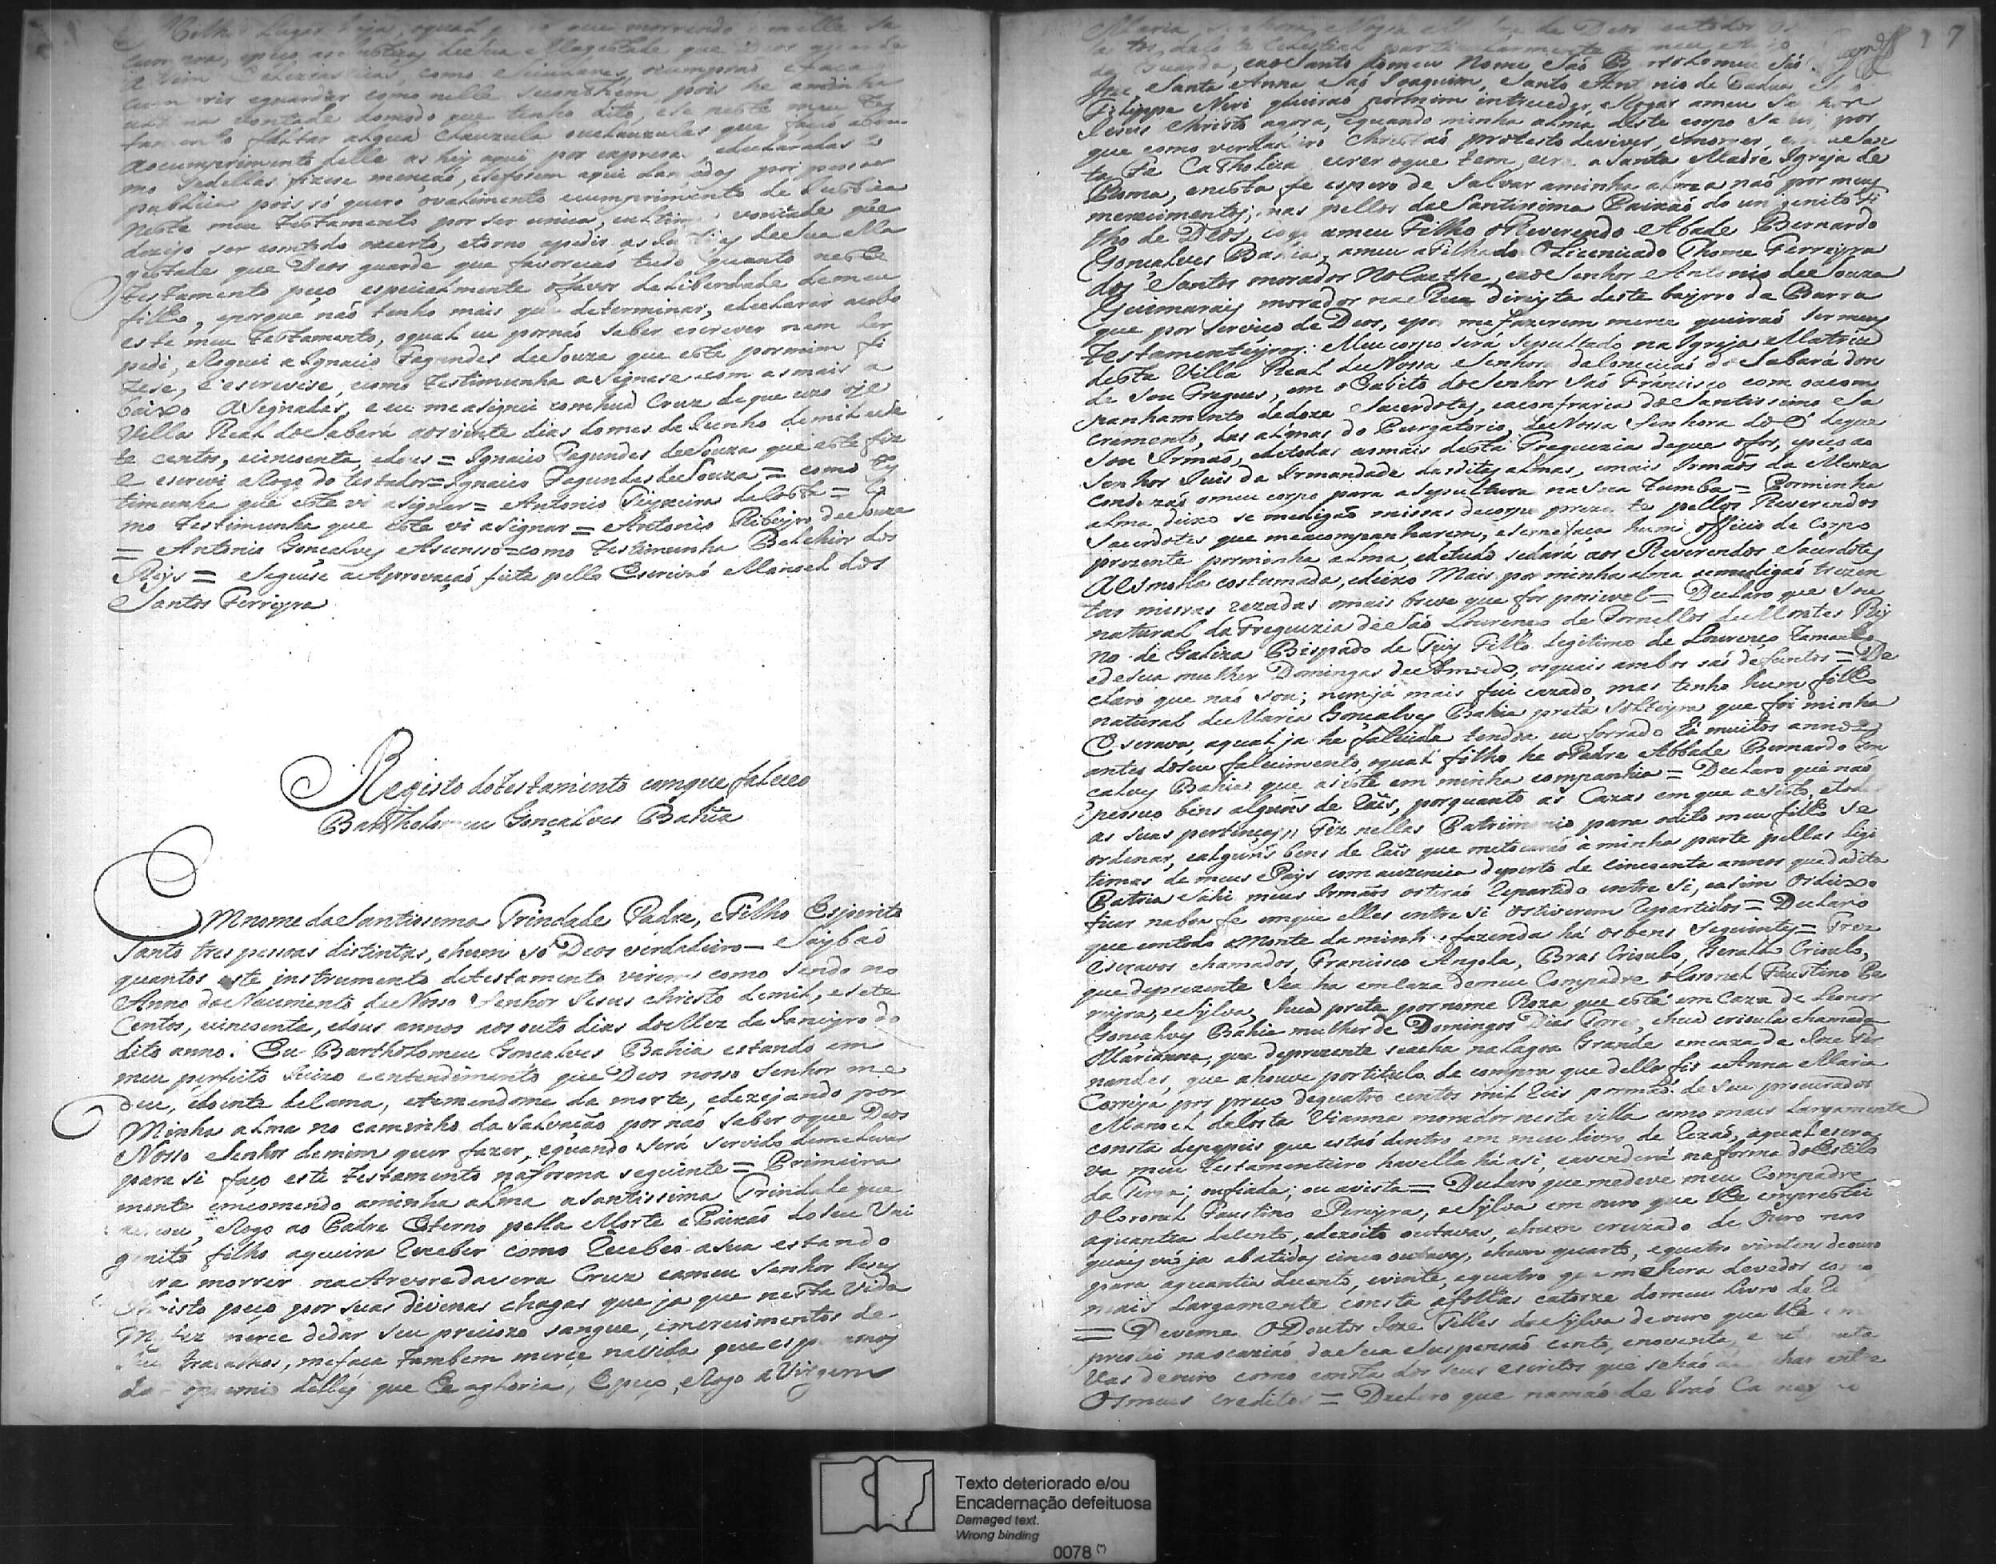 cumpra, e peço as justiças de sua Magestade que Deos guarde
cumprir e guardar como nelle se conthem, pois he a minha
ultima vontade do modo que tenho dito, e se neste meu tes
tamento faltar algua clauzula ou clauzulas que faça a bem
ao cumprimento delle as hey aqui por expresas, e declaradas co
mo se dellas fizese menção, e se fosem aqui lançadas por pesoa
publica pois só quero o valimento e cumprimento do
neste meu testamento por ser unica, e ultima vontade que
dezejo ser comtudo o certo, e torno a pedir as Justiças de sua Ma
gestade que Deos guarde que favoreção tudo quanto neste
testamento peço especialmente o favor da liberdade de meu
filho, e porque não tenho mais que determinar, e declarar acabo
este meu testamento, o qual eu por não saber escrever nem ler
pedi, e roguei a Ignacio Fagundes de Souza que este por mim fi
zese, e escrevese, e como testimunha asignase com as mais a
baixo asignadas, e eu me asignei com hua Cruz de que uzo oje
Villa Real do Sabará aos vinte dias do mes de Junho de mil e se
te centos, e sincoenta, e dous = Ignacio Fagundes de Souza que este fiz
e escrevi a rogo do testador = Ignacio Fagundes de Souza = como tes
timunha que este vi asignar = Antonio Teixeira da Costa = Co
mo testimunha que este vi asignar = Antonio Ribeyro de Souza
= Antonio Gonçalves Asenso = como testimunha Belchior dos
Reys = e seguise a Aprovação feita pello Escrivão Manoel dos
Santos Ferreyra
Registo do testamento com que faleceo
Bartholomeu Gonçalves Bahia
Em nome da Santissima Trindade Padre, e Filho Espirito
Santo tres pessoas distintas, e hum só Deos verdadeiro — Saybão
quantos este instrumento de testamento virem como sendo no
Anno do Nascimento de Nosso Senhor Jesus Christo de mil, e sete
centos, e sincoenta, e dous annos aos outo dias do Mez de Janeyro do
dito anno. Eu Bartholomeu Gonçalves Bahia estando em
meu perfeito Juizo e entendimento que Deos nosso Senhor me
deu, doente de cama, e temendome da morte, e dezejando por
Minha alma no caminho da Salvação por não saber o que Deos
Nosso Senhor de mim quer fazer, e quando será servido de me levar
para si faço este testamento na forma seguinte = Primeira
mente emcomendo a minha alma a Santissima Trindade que
a criou, e Rogo ao Padre Eterno pella Morte e Paixão do seu Uni
genito filho a queira receber como Recebeo a sua estando
para morrer na Arvore da vera Cruz e a meu Senhor Jesus
Christo peço por suas divinas chagas que ja que nesta Vida
Me fez merce de dar seu preciozo sangue, e merecimentos de
seus trabalhos, me faça tambem merce na vida que esperamos
dar o premio delles que he a gloria, e peço, e Rogo a Virgem
Maria Senhora Nossa de Deos e a todos os
Santos da Corte Celestial particularmente ao meu Anjo
da Guarda, e ao Santo do meu Nome São Bartholomeu São
Joze, e Santa Anna e São Joaquim, e Santo Antonio de Padua e São
Felippe Neri queirão por mim interceder, e Rogar a meu Senhor
Jesus Christo agora, e quando minha alma deste corpo sahir, por
que como verdadeiro Christão protesto de viver, e morrer, em a San
ta Fe Catholica e crer o que tem, e cre a Santa Madre Igreja de
Roma, e nesta fe espero de Salvar a minha alma não por meus
merecimentos, mas pellos da Santissima Paixão do unigenito Fi
lho de Deos, rogo a meu Filho o Reverendo Abade Bernardo
Gonçalves Bahia, a meu afilhado O Licenciado Thome Ferreyra
dos Santos morador No Caethe, e ao Senhor Antonio de Souza
Guimarais morador na Rua direyta deste bayrro da Barra
que por serviço de Deos, e por me fazerem merce queirão ser meus
Testamenteyros. Meu corpo será sepultado na Igreja Matriz
desta Villa Real de Nossa Senhora da Conceição do Sabará don
de Sou Fregues, em o habito do Senhor São Francisco com o acom
panhamento de doze Sacerdotes, e a confraria do Santissimo Sa
cramento, das almas do Purgatorio, de Nossa Senhora do Ó de que
Sou Irmão, e de todas as mais desta Freguezia de que o for, e peço ao
Senhor Juis da Irmandade das ditas almas, e mais Irmãos da Meza
conduzão o meu corpo para a Sepultura na Sua Tumba = Por minha
alma deixo se me digão missas de corpo prezente pellos Reverendos
Sacerdotes que me acompanharem, e se me faça hum Officio de Corpo
prezente por minha alma, e de tudo se dará aos Reverendos Sacerdotes
A esmolla costumada, e deixo Mais por minha alma se me digão trezen
tas missas rezadas o mais breve que for posivel = Declaro que sou
natural da Freguezia de São Lourenço de Fornellos de Montes Rey
no de Galiza Bispado de Tuy Filho legitimo de Lourenço
e de sua mulher Domingas de Amoedo, os quais ambos são defuntos = De
claro que não sou; nem ja mais fui cazado, mas tenho hum filho
natural de Maria Gonçalves Bahia preta Solteyra que foi minha
Escrava, a qual ja he falecida tendoa eu forrado há muitos annos
antes do seu falecimento o qual filho he o Padre Abbade Bernardo Gon
çalves Bahia que asiste em minha companhia = Declaro que não
pessuo bens alguns de Rais, porquanto as Cazas em que asisto, e todas
as suas pertenças Fiz nellas Patrimonio para o dito meu filho se
ordenar, e alguns bens de Rais que me tocarão a minha parte pellas legi
timas de meus Pays com auzencia de perto de sincoenta annos que da dita
Patria Sahi meus Irmãos os terão repartido entre si, e asim os deixo
ficar na boa fe em que elles entre si os tiverem repartidos = Declaro
que em todo o Monte da minha fazenda há os bens seguintes = Tres
Escravos chamados, Francisco Angola, Bras Crioulo, Geraldo Crioulo,
que de prezente se acha em caza de meu Compadre o Coronel Faustino Pe
reyra, e Sylva, hua preta por nome Roza que está em Caza de Leonor
Gonçalves Bahia mulher de Domingos Dias Torres, e hua crioula chamada
Marianna, que de prezente se acha na Lagoa Grande em caza de Joze Fer
nandes, que a houve por titulo de compra que della fis a Anna Maria
Correya por preço de quatro centos mil reis por mão de seu procurador
Manoel da Costa Vianna morador nesta villa como mais largamente
consta de papeis que estão dentro em meu livro de Rezão, a qual escra
va meu testamenteiro havella há a si, e a venderá na forma do Estilo
da Terra; ou fiada; ou a vista = Declaro que me deve meu Compadre
o Coronel Faustino Pereyra, e Sylva em ouro que lhe emprestei
a quantia de cento, e dezoito outavas, e hum cruzado de Ouro nas
quais vão ja abatidas cinco outavas, e hum quarto, e quatro vintens de ouro
para a quantia de cento, e vinte, e quatro que me hera devedor como
mais Largamente consta a folhas catorze do meu livro de Re
= Deveme O Doutor Joze Telles da Sylva de ouro que lhe em
prestei na ocazião da Sua Suspensão cento, e noventa, e
vas de ouro como consta dos seus escritos que se hão de achar entre
Os meus creditos = Declaro que na mão de João